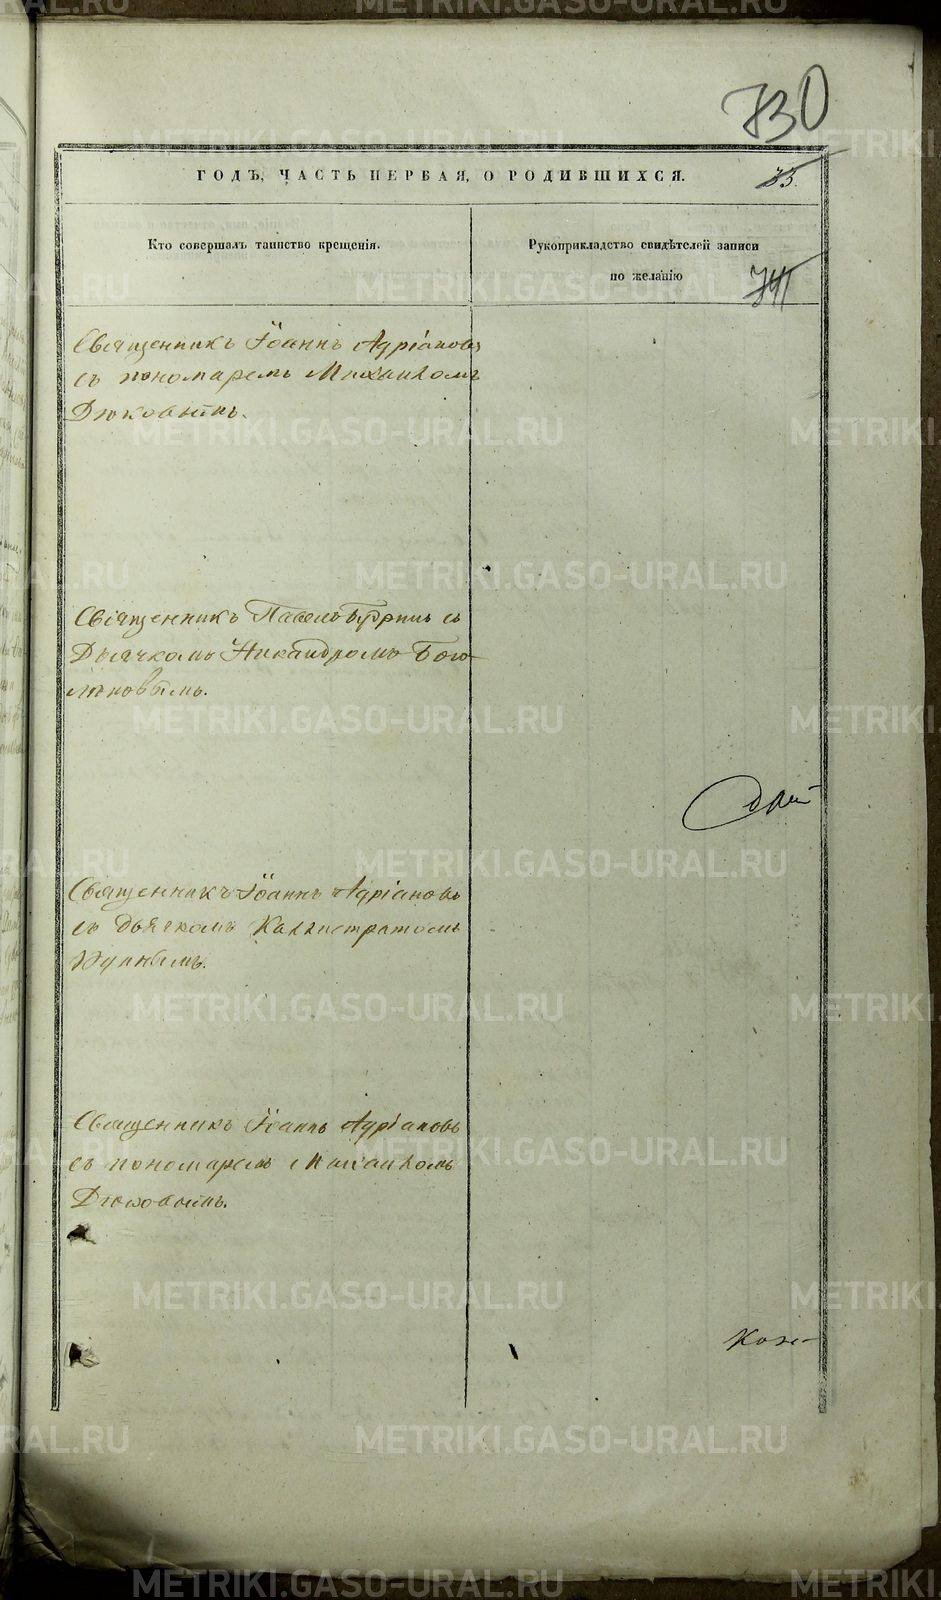 730
ГОДЪ, ЧАСТЬ ПЕРВАЯ, О РОДИВШИХСЯ.
Кто совершалъ таинство крещенія.
Рукоприкладство свидѣтелей записи
по желанію
741
Священникъ Іоаннъ Адріановъ
съ пономаремъ Михаиломъ
Дюковымъ.
Священникъ Павелъ съ
Дьячкомъ Никандромъ Бого
Священникъ Іоаннъ Адріановъ
съ дьячкомъ Каллистратомъ
Священникъ Іоаннъ Адріановъ
съ пономаремъ Михаиломъ
Дюковымъ.
METRIKI.GASO-URAL.RU